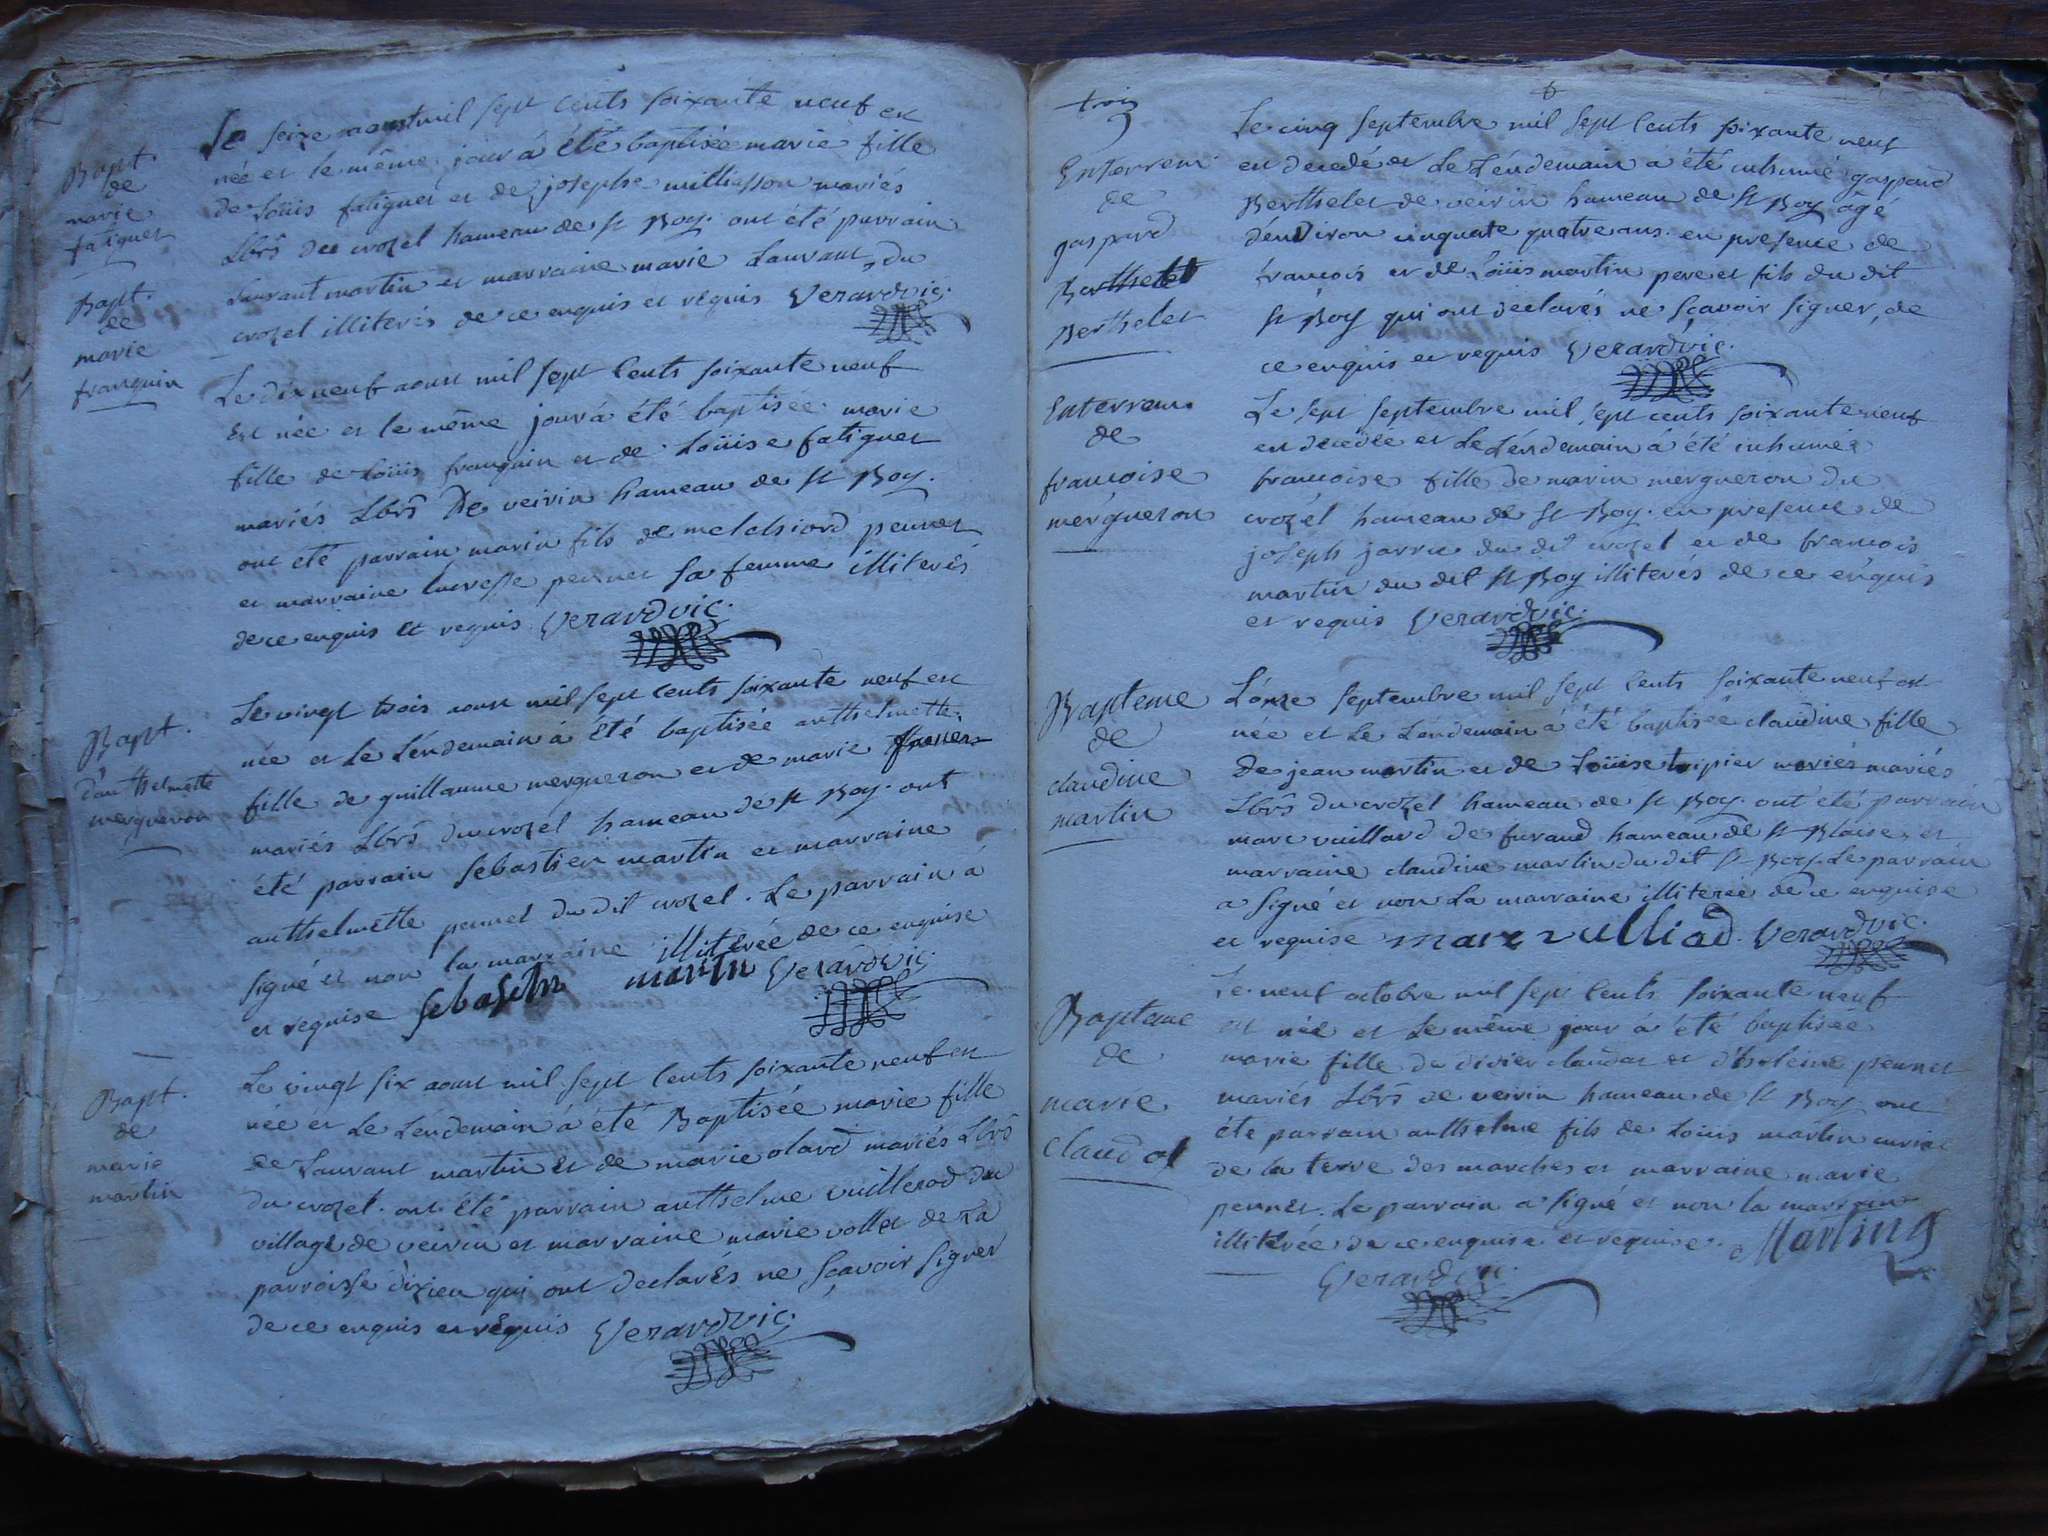 Bapt.
de
marie
fatiguet
Le seize aoust mil sept cents soixante neuf est
née et le même jour à été baptisée marie fille
de Loüis fatiguet et de josephe milliasson mariés
Lbrs du crozel hameau de st Boy. ont été parrain
Laurant martin et marraine marie Laurant du
crozel illiterés de ce enquis et requis Verard vic.
Bapt.
de
marie
franquin
Le dix neuf aoust mil sept cents soixante neuf
Est née et le même jour à été baptisée marie
fille de Loüis franquin et de Loüise fatiguet
mariés Lbrs De veirin hameau de st Boy.
ont été parrain marin fils de melchiord pennet
et marraine lucresse pennet sa femme illiterés
de ce enquis et requis Verard vic.
Bapt.
d'anthelmette
mergueron
Le vingt trois aoust mil sept cents soixante neuf est
née et Le Léndemain à été baptisée anthelmette
fille de guillaume mergueron et de marie
mariés Lbrs du crozel hameau de st Boy. ont
été parrain sebastien martin et marraine
anthelmette pennet du dit crozel. Le parrain à
signé et non la marraine illiterée de ce enquise
et requise sebastin martin Verard vic.
Bapt.
de
marie
martin
Le vingt six aoust mil sept cents soixante neuf est
née et Le Léndemain à été Baptisée marie fille
de Laurant martin et de marie olard mariés Lbrs
du crozel. ont été parrain anthelme vuillerod du
village de veirin et marraine marie vollet de La
parroisse d'izieu qui ont declarés ne sçavoir signer
de ce enquis et requis Verard vic.
trois
6
Enterrem.
de
gaspard
Berthelet
Berthelet
Le cinq septembre mil sept cents soixante neuf
est decedé et Le Léndemain à été inhumé gaspard
Berthelet de veirin hameau de st Boy agé
dénviron cinquate quatre ans. en presence de
francois et de Loüis martin pere et fils du dit
st Boy qui ont declarés ne sçavoir signer, de
ce enquis et requis Verard vic.
Enterrem.
de
francoise
mergueron
Le sept septembre mil sept cents soixante neuf
est decedée et Le Léndemain à été inhumée
francoise fille de marin mergueron du
crozel hameau de st Boy. en presence de
joseph jarrin du dit crozel et de francois
martin du dit st Boy illiterés de ce enquis
et requis Verard vic.
Bapteme
de
claudine
martin
L'onze septembre mil sept cents soixante neuf est
née et Le Lendemain à été baptisée claudine fille
De jean martin et de Loüise tripier mariés mariés
Lbrs du crozel hameau de st Boy. ont été parrain
marc vuillard de furand hameau de st Blaise et
marraine claudine martin du dit st Boy. Le parrain
a signé et non La marraine illiterée de ce enquise
et requise marc vulliod. Verard vic.
Bapteme
de
marie
claudat
Le neuf octobre mil sept cents soixante neuf
est née et Le même jour à été baptisée
marie fille de divier claudat et d'hseleine pennet
mariés Lbrs de veirin hameau de st Boy. ont
été parrain anthelme fils de Loüis martin curial
de la terre des marches et marraine marie
pennet. Le parrain a signé et non la marraine
illiterée de ce enquise et requise. Martin
Verard vic.